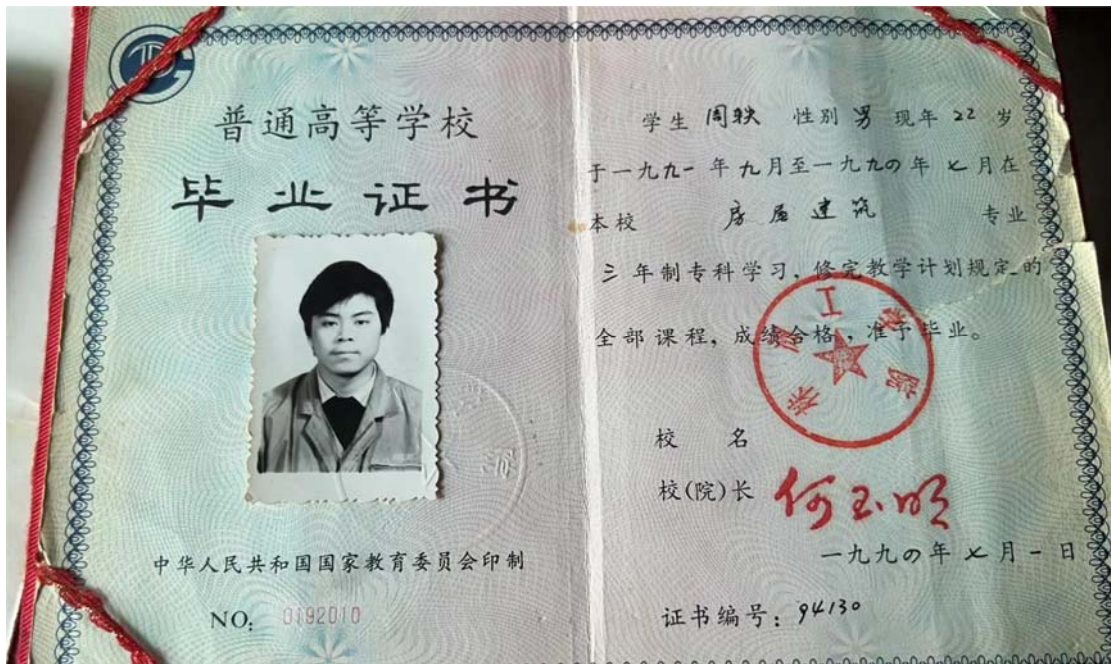 普通高等学校
毕业证书
中华人民共和国国家教育委员会印制
NO: 0192010
学生 周轶 性别 男 现年 22 岁
于一九九一年九月至一九九四年七月在
本校 房屋建筑 专业
三年制专科学习，修完教学计划规定的
全部课程，成绩合格，准予毕业。
校 名
校(院)长 何玉明
一九九四年七月一日
证书编号：94130